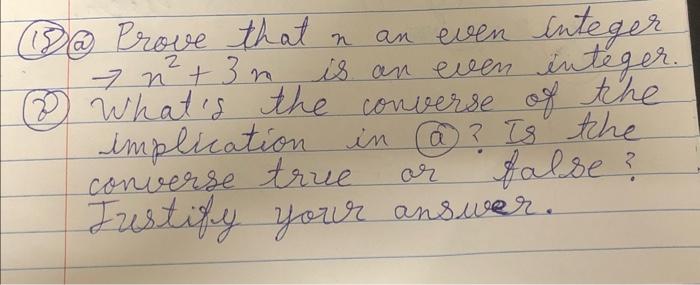 (15) (a) Prove that n an even integer
→ n² + 3n is an even integer.
(b) What's the converse of the
implication in (a)? Is the
converse true or false?
Justify your answer.